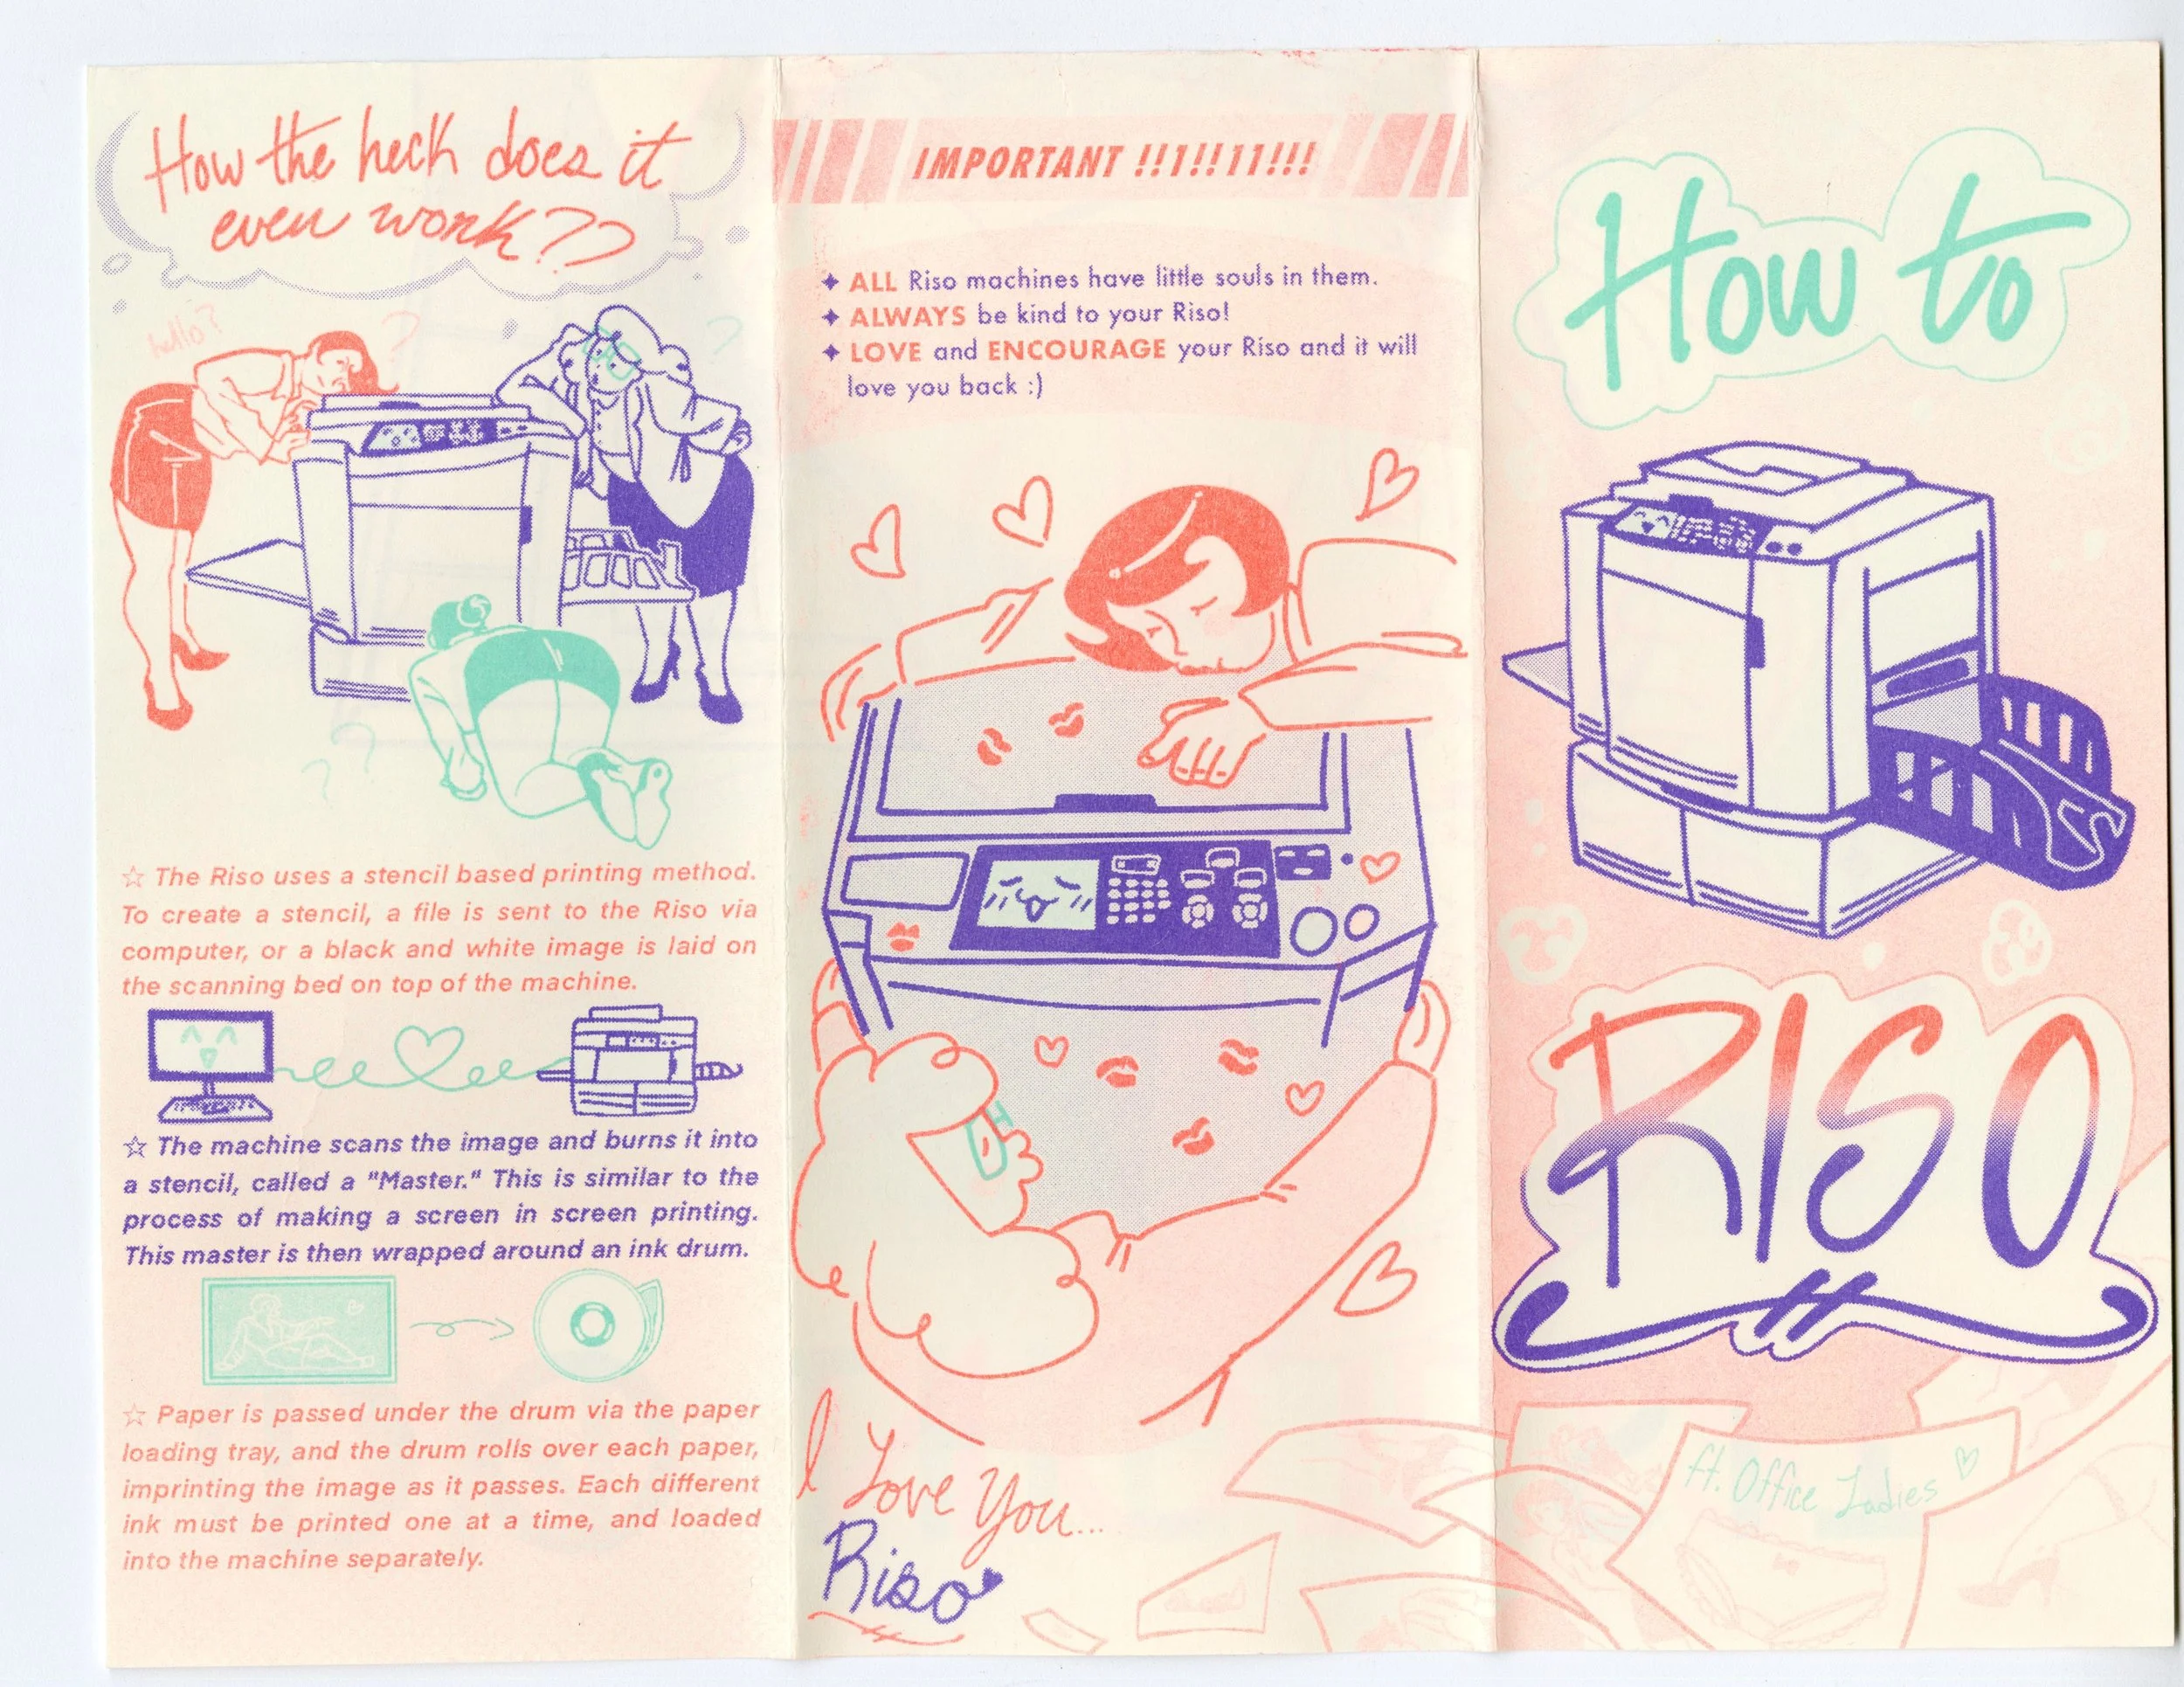 How the heck does it
even work??
hello?
?
?
? ?
☆ The Riso uses a stencil based printing method.
To create a stencil, a file is sent to the Riso via
computer, or a black and white image is laid on
the scanning bed on top of the machine.
☆ The machine scans the image and burns it into
a stencil, called a "Master." This is similar to the
process of making a screen in screen printing.
This master is then wrapped around an ink drum.
☆ Paper is passed under the drum via the paper
loading tray, and the drum rolls over each paper,
imprinting the image as it passes. Each different
ink must be printed one at a time, and loaded
into the machine separately.
IMPORTANT !!1!!11!!!
✦ ALL Riso machines have little souls in them.
✦ ALWAYS be kind to your Riso!
✦ LOVE and ENCOURAGE your Riso and it will
love you back :)
I Love You...
Riso
How to
RISO
ft. Office Ladies ♡